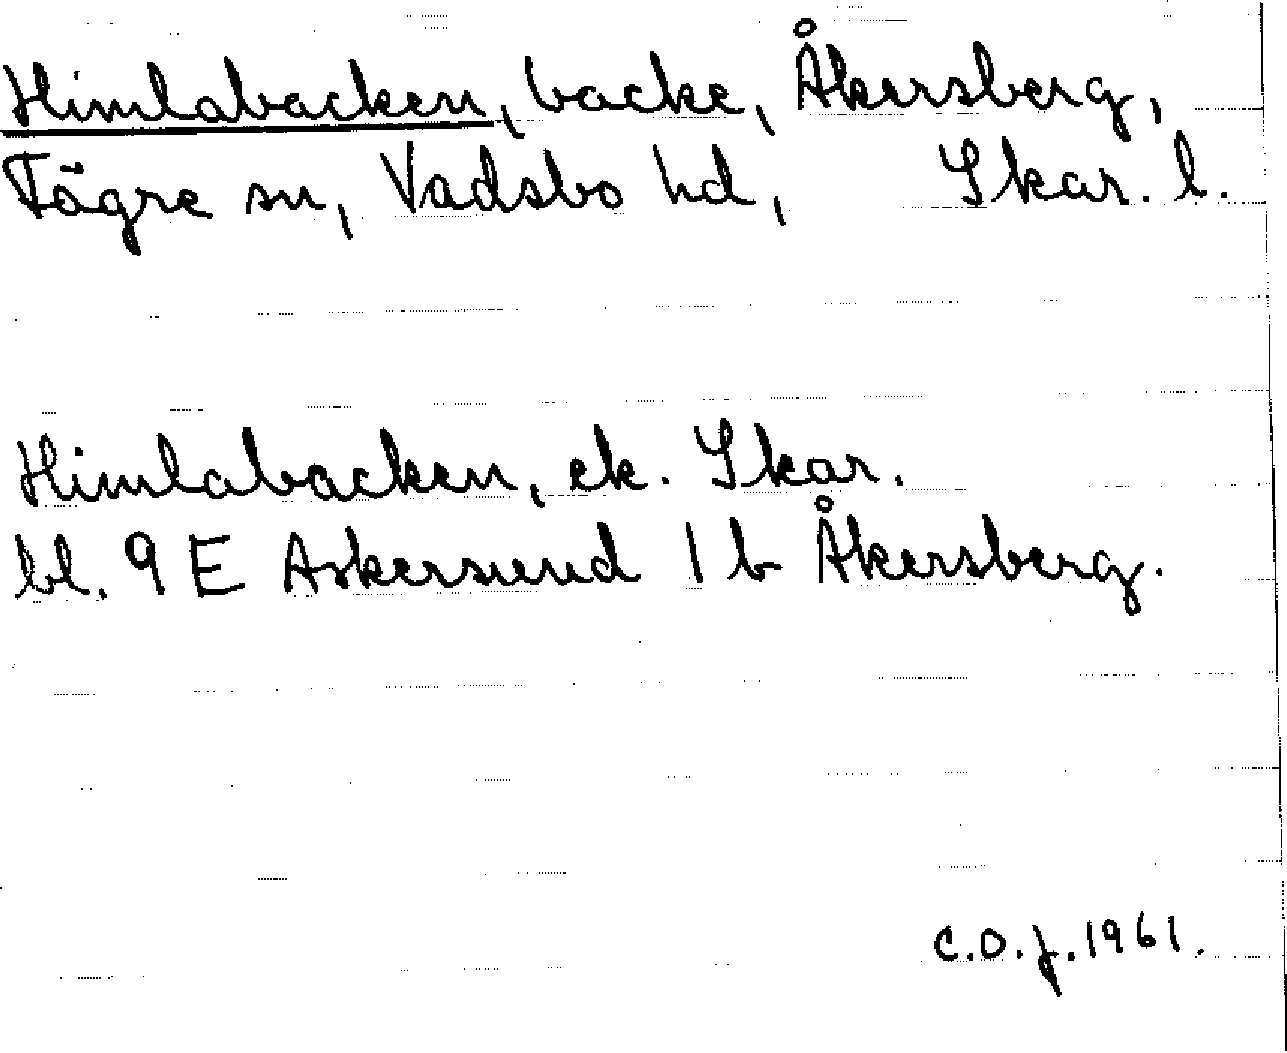 Himlabacken, backe, Åkersberg,
Fägre sn, Vadsbo hd, Skar. l.
Himlabacken, ek. Skar.
bl. 9 E Askersund 1 b Åkersberg.
C.O.J. 1961.